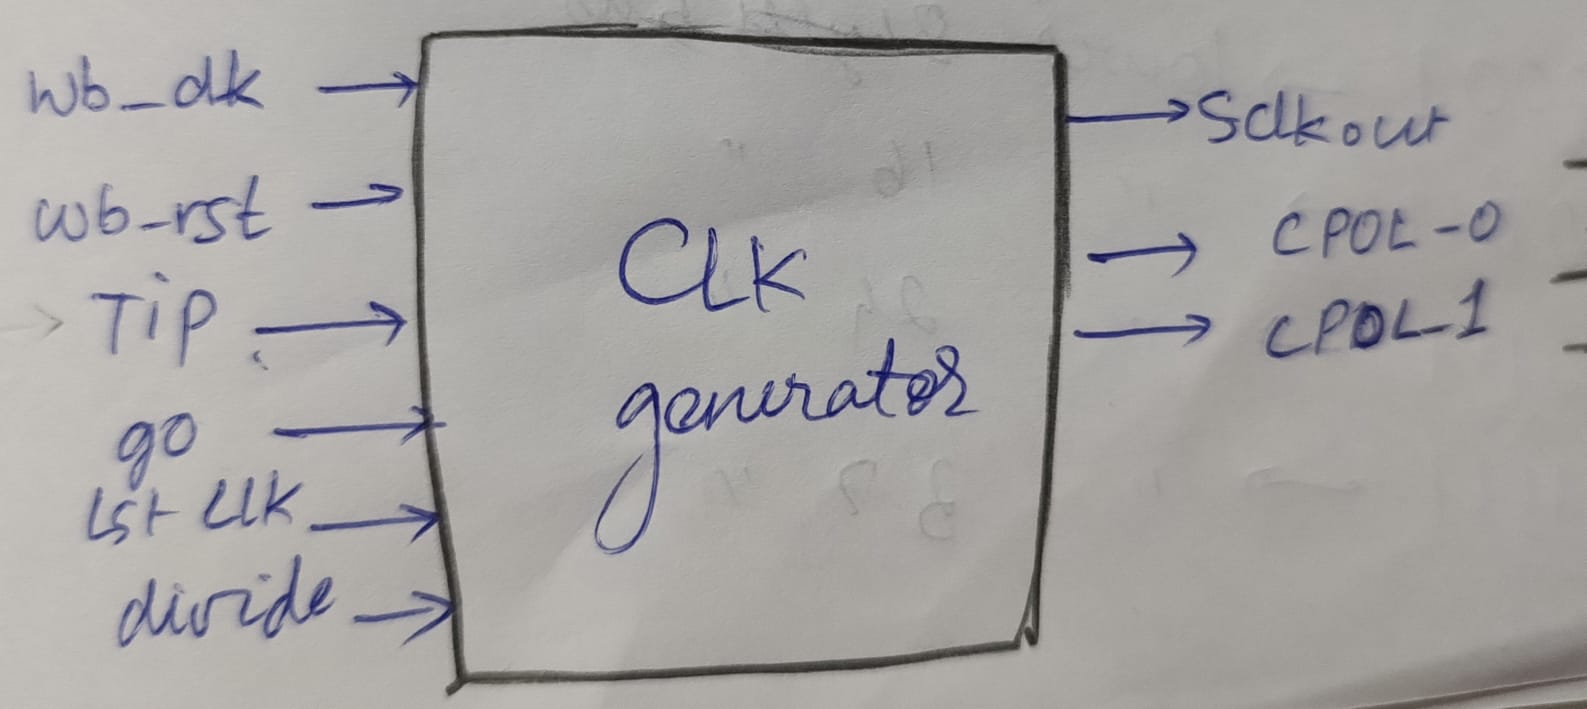 wb_clk
wb_rst
Tip
go
Lst clk
divide
CLK
generator
Sclkout
CPOL-0
CPOL_1